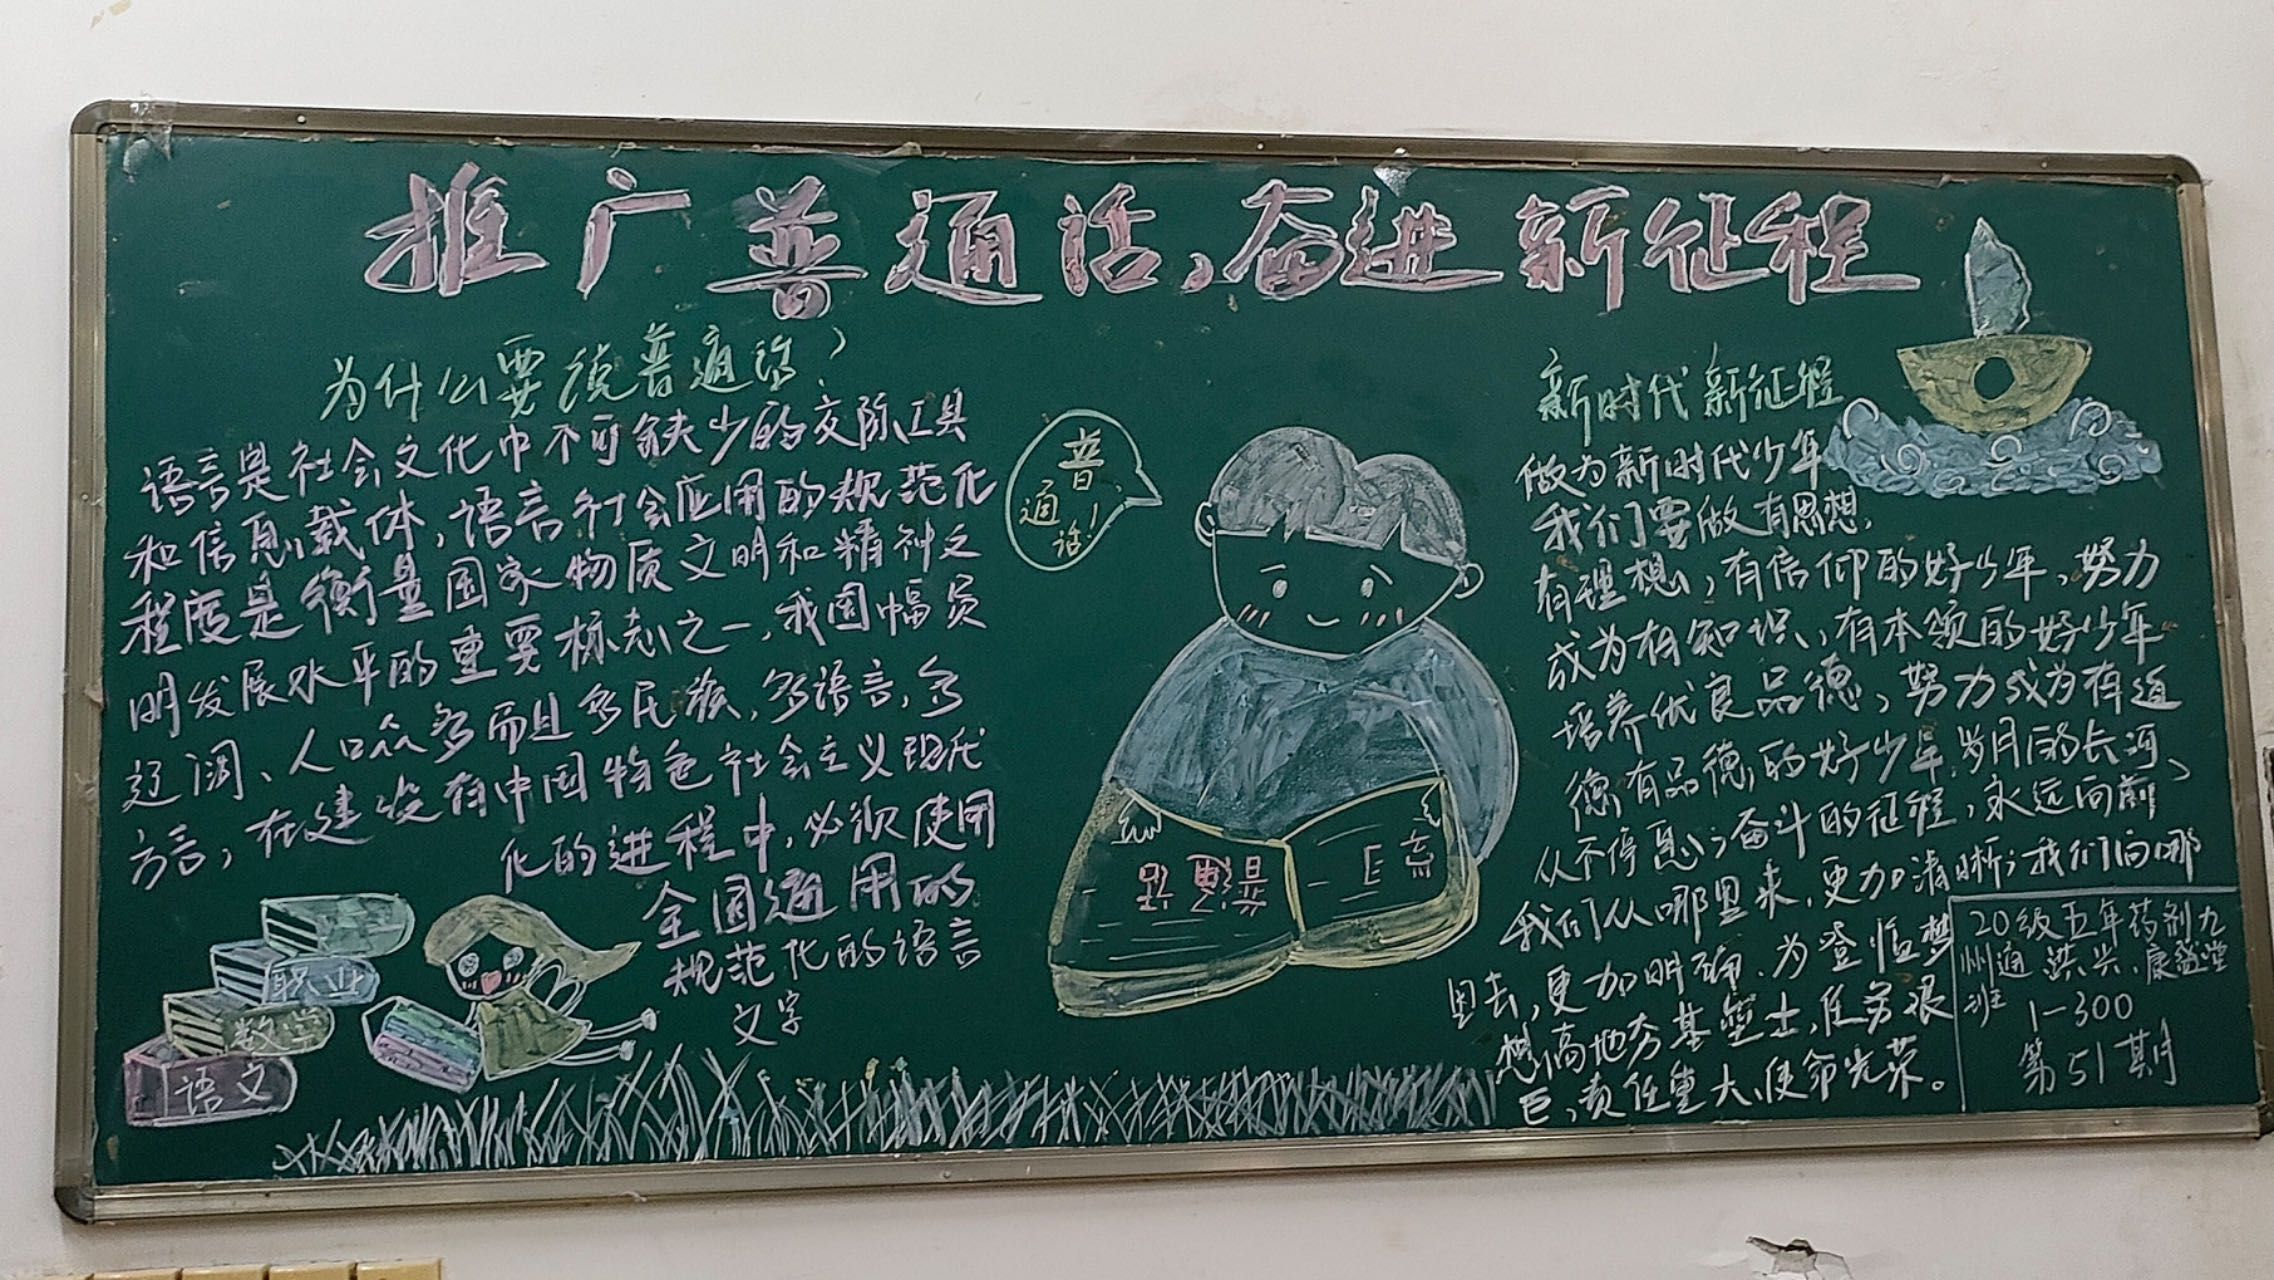 推广普通话,奋进新征程
为什么要说普通话?
语言是社会文化中不可缺少的交际工具
和信息载体,语言社会应用的规范化
程度是衡量国家物质文明和精神文
明发展水平的重要标志之一,我国幅员
辽阔、人口众多而且多民族,多语言,多
方言,在建设有中国特色社会主义现代
化的进程中,必须使用
全国通用的
规范化的语言
文字
职业
数学
语文
普
通
话!
普通话
写
新时代新征程
做为新时代少年
我们要做有思想,
有理想,有信仰的好少年、努力
成为有知识,有本领的好少年
培养优良品德,努力成为有道
德有品德的好少年,岁月的长河、
从不停息;奋斗的征程,永远向前、
我们从哪里来,更加清晰;我们向哪
里去,更加明确.为登临梦
想高地夯基垒土,任务艰
巨,责任重大,使命光荣。
20级五年药剂九
州通 洪兴、康盛堂
班
1-300
第51期